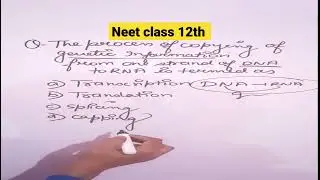 Neet class 12th
Q- The process of copying of
genetic Information
from one strand of DNA
to RNA is termed as
a) Transcription (DNA → RNA)
b) Translation
c) Splicing
d) Capping